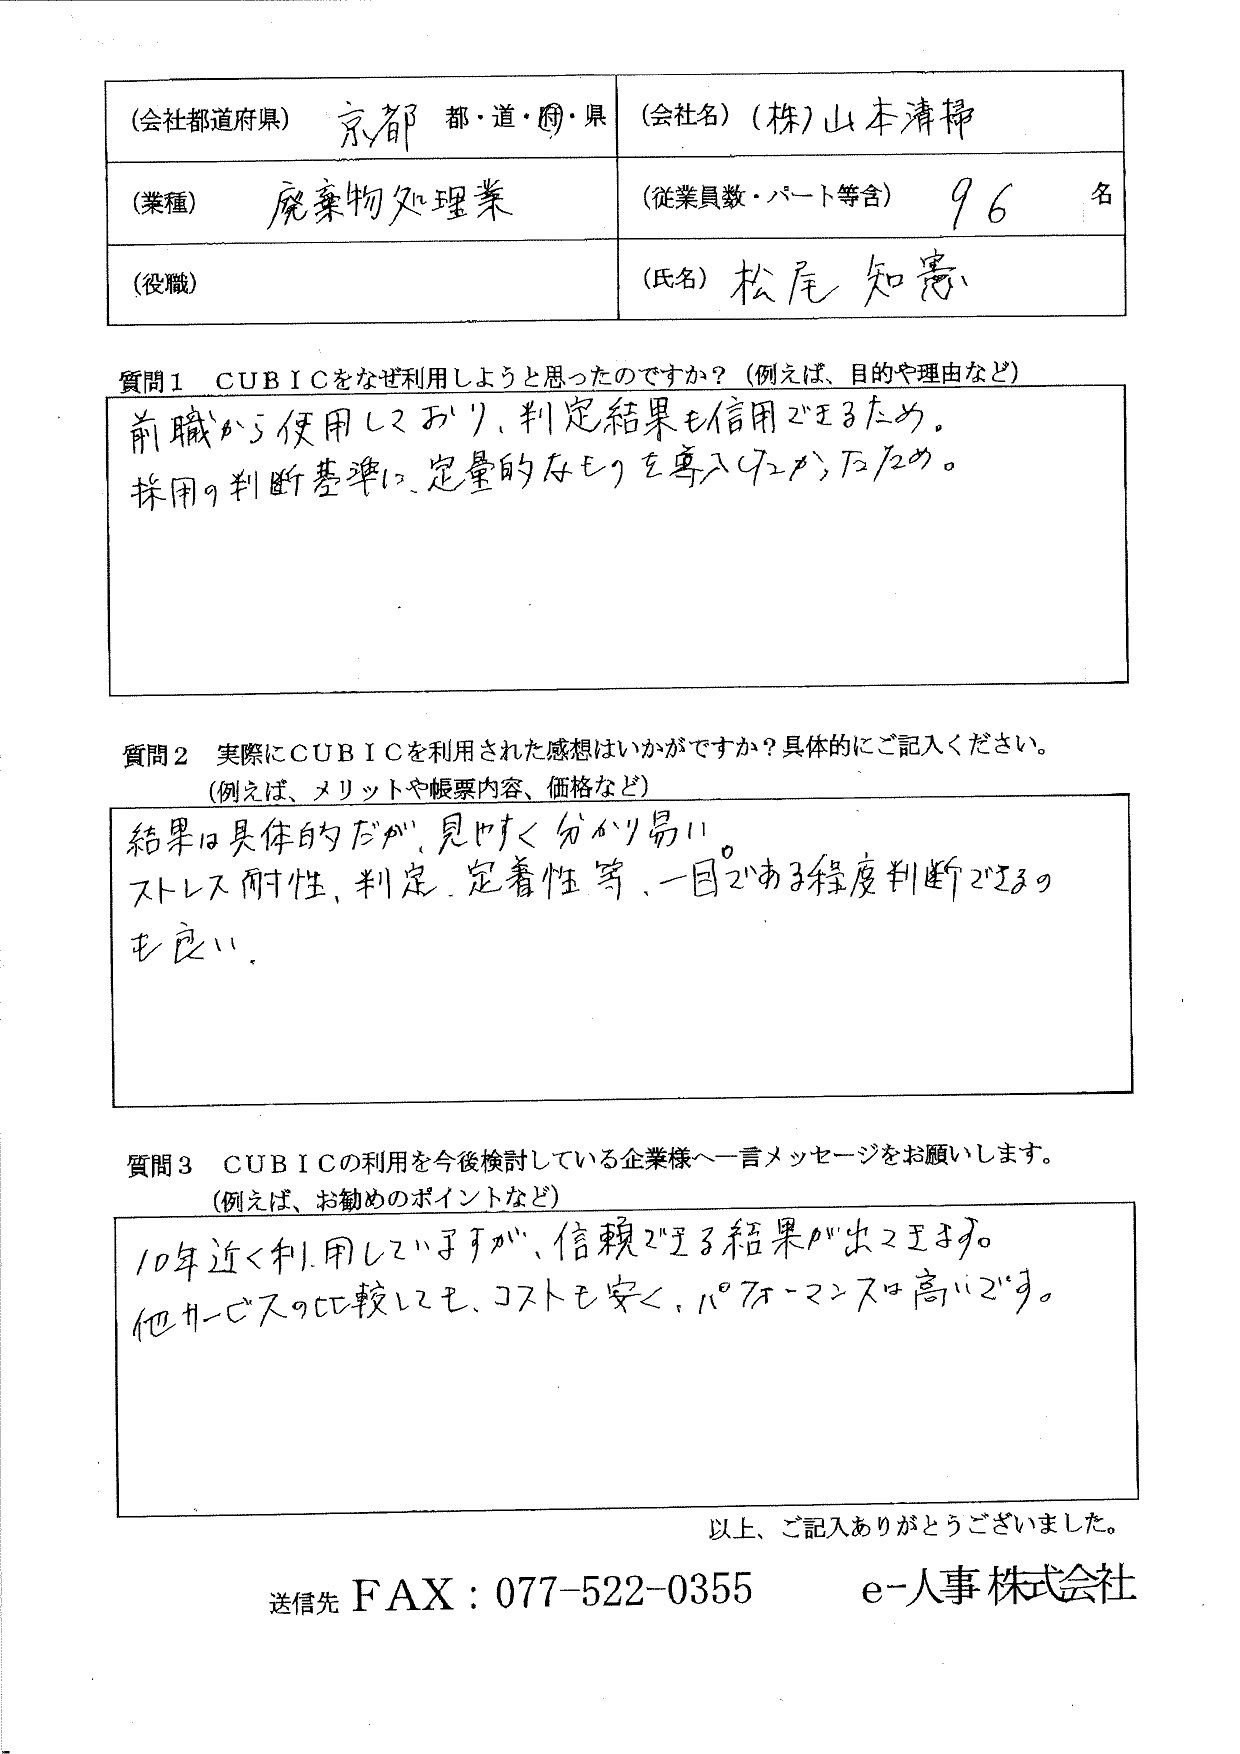 (会社都道府県) 京都 都・道・府・県 (会社名) (株)山本清掃
(業種) 廃棄物処理業 (従業員数・パート等含) 96 名
(役職) (氏名) 松尾 知憲
質問1 CUBICをなぜ利用しようと思ったのですか？(例えば、目的や理由など)
前職から使用しており、判定結果も信用できるため。
採用の判断基準に、定量的なものを導入したかったため。
質問2 実際にCUBICを利用された感想はいかがですか？具体的にご記入ください。
(例えば、メリットや帳票内容、価格など)
結果は具体的だが、見やすく分かり易い。
ストレス耐性、判定、定着性等、一目である程度判断できるの
も良い.
質問3 CUBICの利用を今後検討している企業様へ一言メッセージをお願いします。
(例えば、お勧めのポイントなど)
10年近く利用していますが、信頼できる結果が出てきます。
他サービスの比較しても、コストも安く、パフォーマンスは高いです。
以上、ご記入ありがとうございました。
送信先 FAX：077-522-0355 e-人事 株式会社